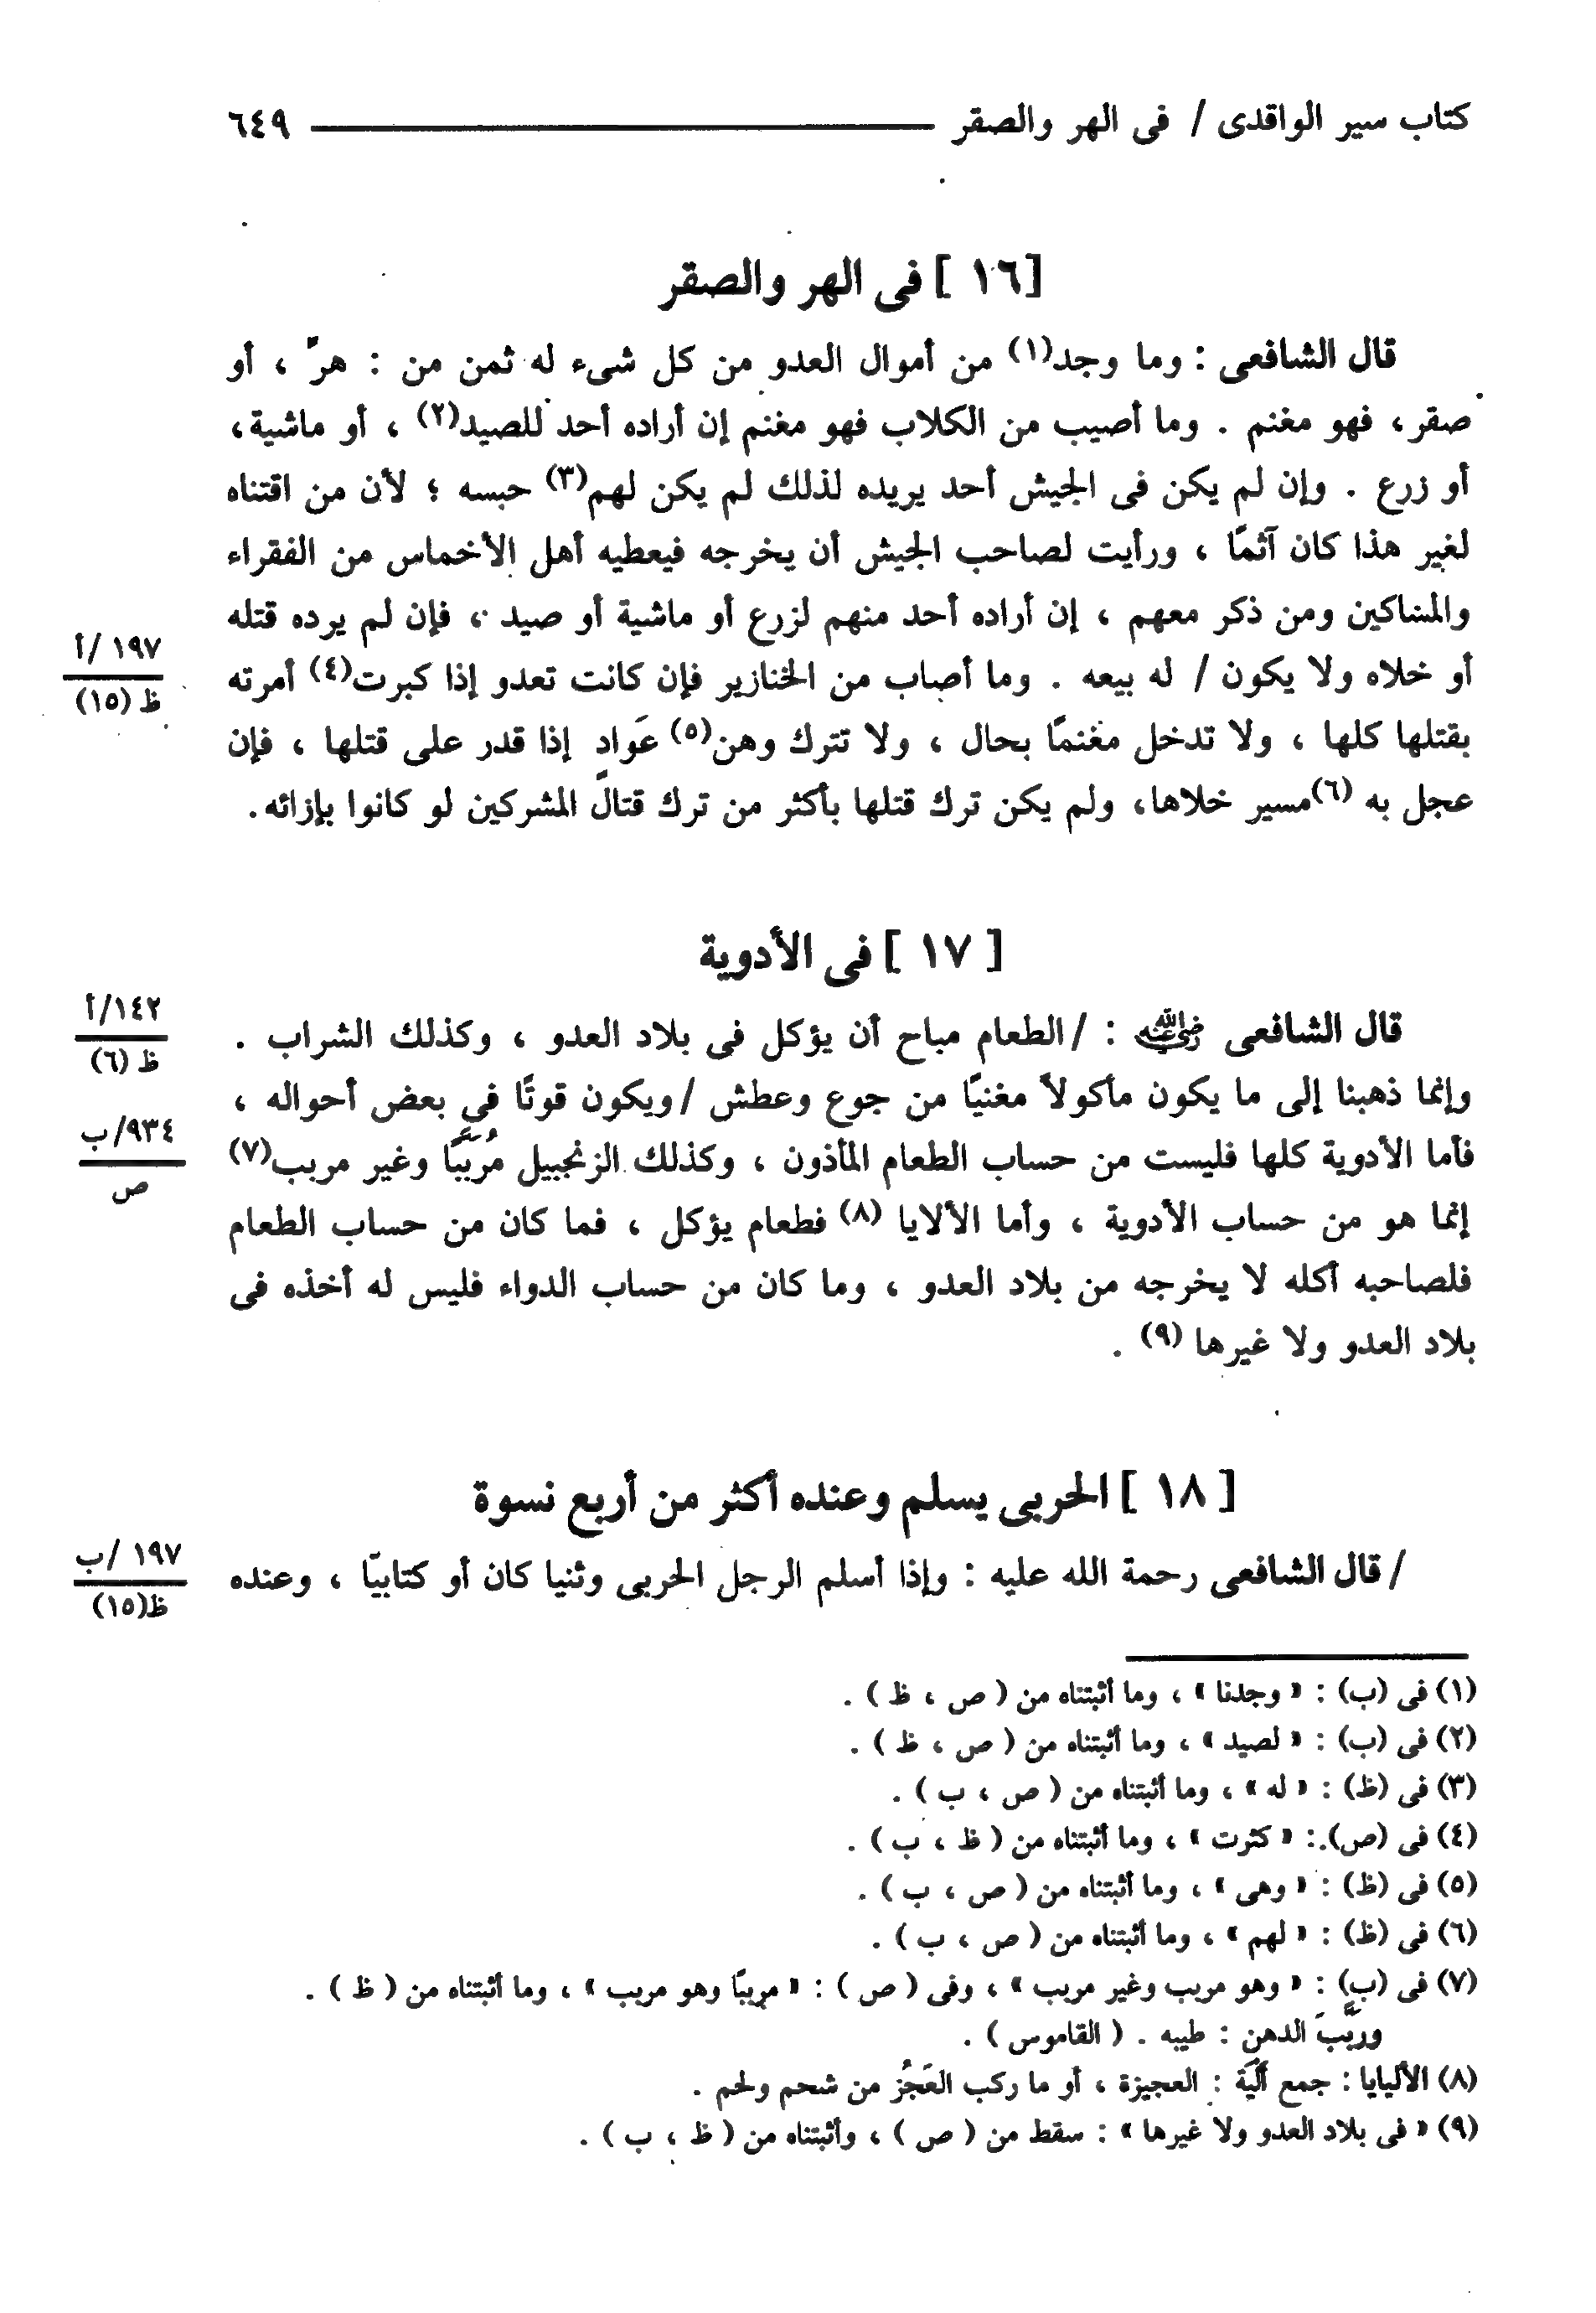 كتاب سير الواقدى / فى الهر والصقر ٦٤٩
[١٦ ] فى الهر والصقر
قال الشافعى : وما وجد(١) من أموال العدو من كل شىء له ثمن من : هرّ ، أو
صقر، فهو مغنم . وما أصيب من الكلاب فهو مغنم إن أراده أحد للصيد(٢) ، أو ماشية،
أو زرع . وإن لم يكن فى الجيش أحد يريده لذلك لم يكن لهم(٣) حبسه ؛ لأن من اقتناه
لغير هذا كان آثمًا ، ورأيت لصاحب الجيش أن يخرجه فيعطيه أهل الأخماس من الفقراء
والمساكين ومن ذكر معهم ، إن أراده أحد منهم لزرع أو ماشية أو صيد ، فإن لم يرده قتله
١٩٧ /أ
أو خلاه ولا يكون / له بيعه . وما أصاب من الخنازير فإن كانت تعدو إذا كبرت(٤) أمرته
ظ (١٥)
بقتلها كلها ، ولا تدخل مغنمًا بحال ، ولا تترك وهن(٥) عَوادٍ إذا قدر على قتلها ، فإن
عجل به (٦)مسير خلاها، ولم يكن ترك قتلها بأكثر من ترك قتال المشركين لو كانوا بإزائه.
[ ١٧ ] فى الأدوية
١٤٢/أ
قال الشافعى رضي الله عنه : /الطعام مباح أن يؤكل فى بلاد العدو ، وكذلك الشراب .
ظ (٦)
وإنما ذهبنا إلى ما يكون مأكولاً مغنيًا من جوع وعطش /ويكون قوتًا في بعض أحواله ،
٩٣٤/ب
فأما الأدوية كلها فليست من حساب الطعام المأذون ، وكذلك الزنجبيل مُرَبَّبًا وغير مربب(٧)
ص
إنما هو من حساب الأدوية ، وأما الألايا (٨) فطعام يؤكل ، فما كان من حساب الطعام
فلصاحبه أكله لا يخرجه من بلاد العدو ، وما كان من حساب الدواء فليس له أخذه فى
بلاد العدو ولا غيرها (٩) .
[ ١٨ ] الحربى يسلم وعنده أكثر من أربع نسوة
١٩٧ /ب
/ قال الشافعى رحمة الله عليه : وإذا أسلم الرجل الحربى وثنيا كان أو كتابيّا ، وعنده
ظ(١٥)
(١) فى (ب) : « وجدنا » ، وما أثبتناه من ( ص ، ظ ) .
(٢) فى (ب) : « لصيد » ، وما أثبتناه من ( ص ، ظ ) .
(٣) فى (ظ) : « له » ، وما أثبتناه من ( ص ، ب ) .
(٤) فى (ص) : « كثرت » ، وما أثبتناه من ( ظ ، ب ) .
(٥) فى (ظ) : « وهى » ، وما أثبتناه من ( ص ، ب ) .
(٦) فى (ظ) : « لهم » ، وما أثبتناه من ( ص ، ب ) .
(٧) فى (ب) : « وهو مربب وغير مربب » ، وفى ( ص ) : « مرببًا وهو مربب » ، وما أثبتناه من ( ظ ) .
وربَّبَ الدهن : طيبه . ( القاموس ) .
(٨) الأليايا : جمع أَلْيَة : العجيزة ، أو ما ركب العَجُز من شحم ولحم .
(٩) « فى بلاد العدو ولا غيرها » : سقط من ( ص ) ، وأثبتناه من ( ظ ، ب ) .